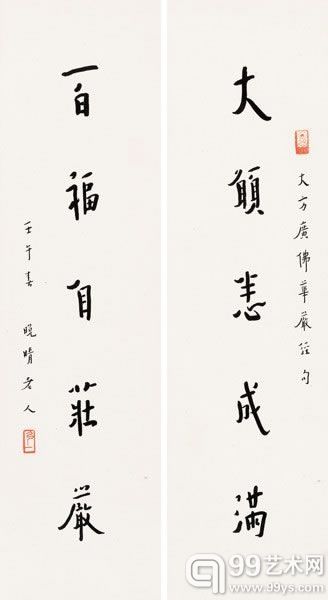 大方廣佛華嚴經句
大願悉成滿
百福自莊嚴
壬午春 晚晴老人
99艺术网
99ys.com